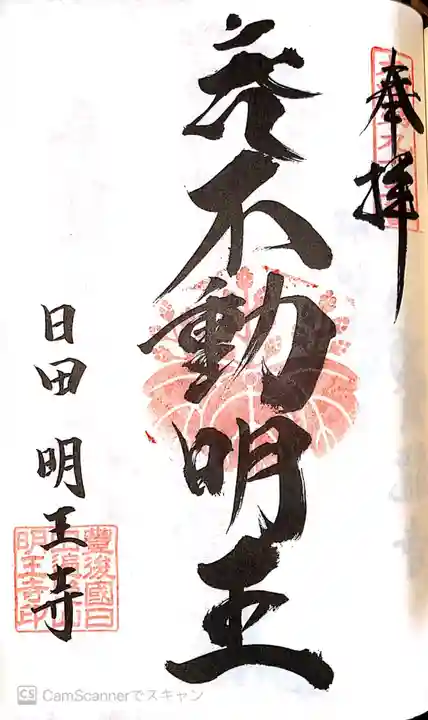 奉拝
不動明王
日田 明王寺
豊後國日
明王寺印
CS CamScannerでスキャン